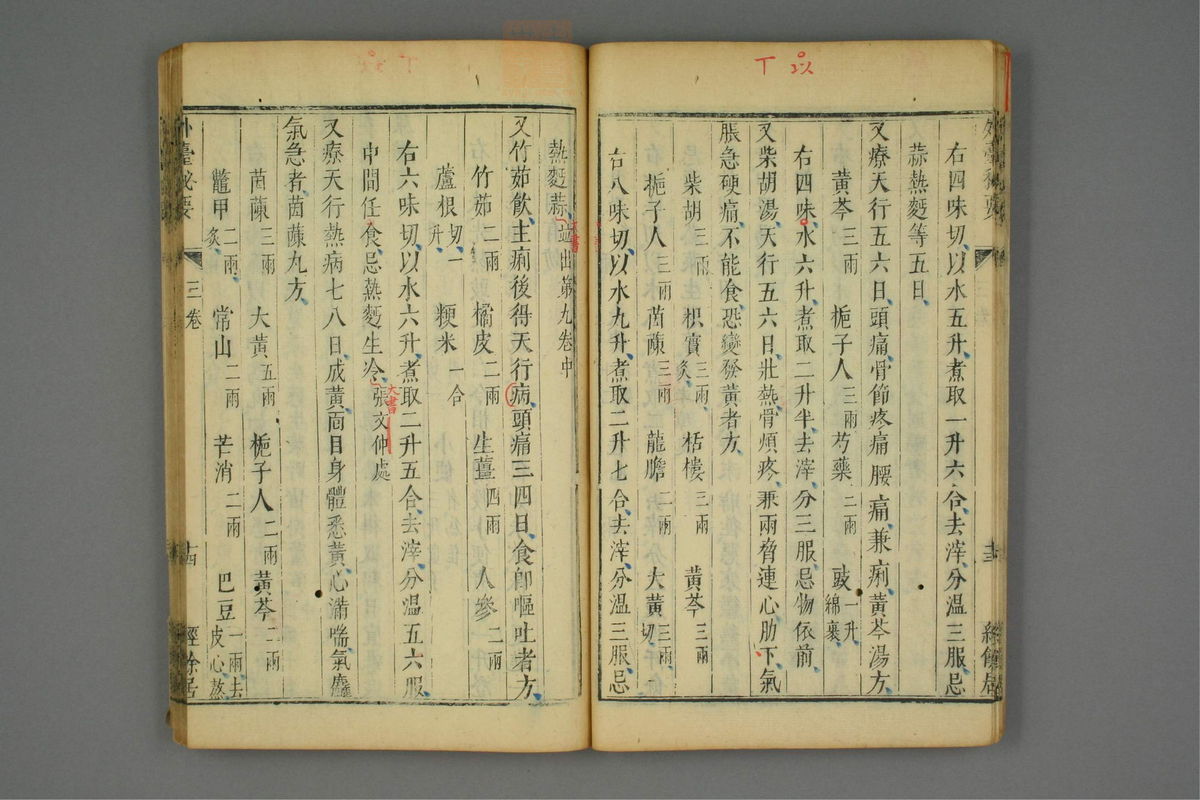 右四味切以水五升煮取一升六合去滓分温三服忌
蒜熱麪等五日
又療天行五六日頭痛骨節疼痛腰痛兼痢黃芩湯方
黃芩三兩 梔子人三兩 芍藥二兩 豉一升綿裹
右四味水六升煮取二升半去滓分三服忌物依前
又柴胡湯天行五六日壯熱骨煩疼兼兩脅連心肋下氣
脹急硬痛不能食恐變發黃者方
柴胡三兩 枳實三兩炙 栝樓三兩 黃芩三兩
梔子人三兩 茵蔯三兩 龍膽二兩 大黃三兩切
右八味切以水九升煮取二升七合去滓分温三服忌
外臺秘要
經餘居
熱麪蒜並出第九卷中
又竹茹飲主痢後得天行病頭痛三四日食卽嘔吐者方
竹茹二兩 橘皮二兩 生薑四兩 人參二兩
蘆根切一升 粳米一合
右六味切以水六升煮取二升五合去滓分温五六服
中間任食忌熱麪生冷張文仲處
大書
又療天行熱病七八日成黃面目身體悉黃心滿喘氣麤
氣急者茵蔯丸方
茵蔯三兩 大黃五兩 梔子人二兩 黃芩二兩
鼈甲二兩炙 常山二兩 芒消二兩 巴豆一兩去皮心熬
外臺秘要 三卷 十四 經餘居